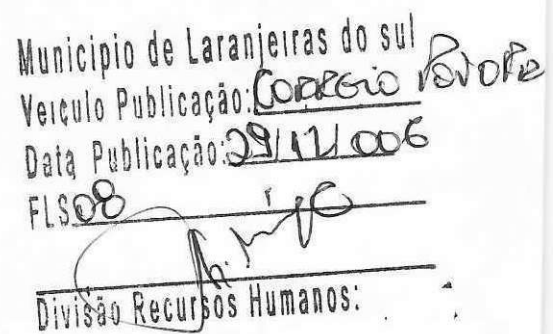 Municipio de Laranjeiras do sul
Veiculo Publicação: CORREIO
Data Publicação: 29/12/006
FLS 08
Divisão Recursos Humanos: